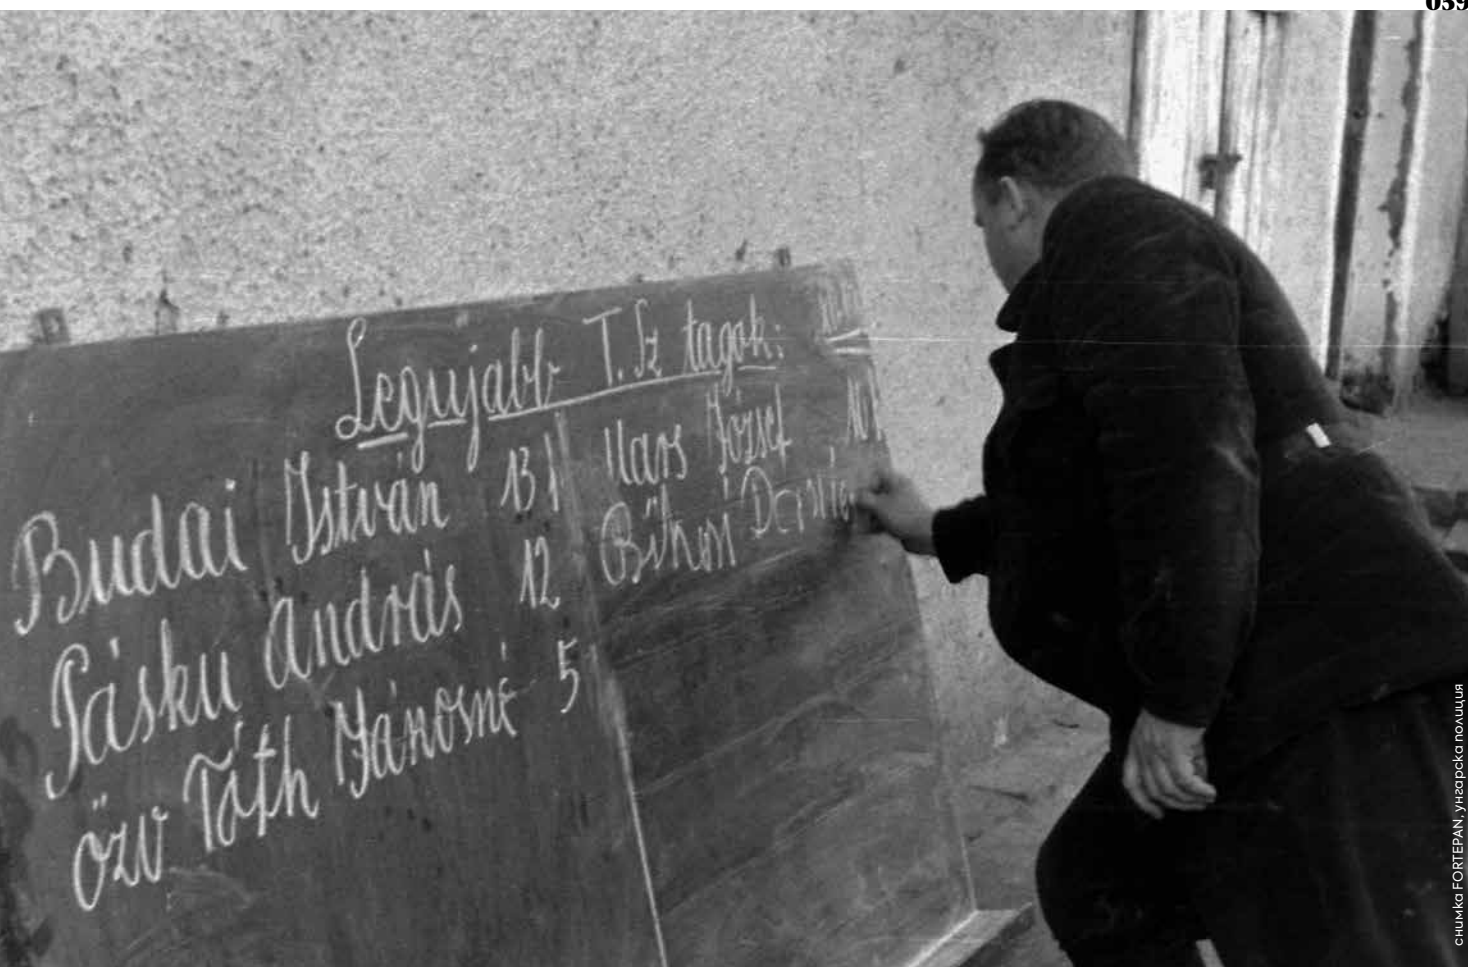 059
Legujabb T.Sz tagok:
Budai István 13
Pásku András 12
özv Tóth Jánosné 5
József 10
снимка FORTEPAN, унгарска полиция